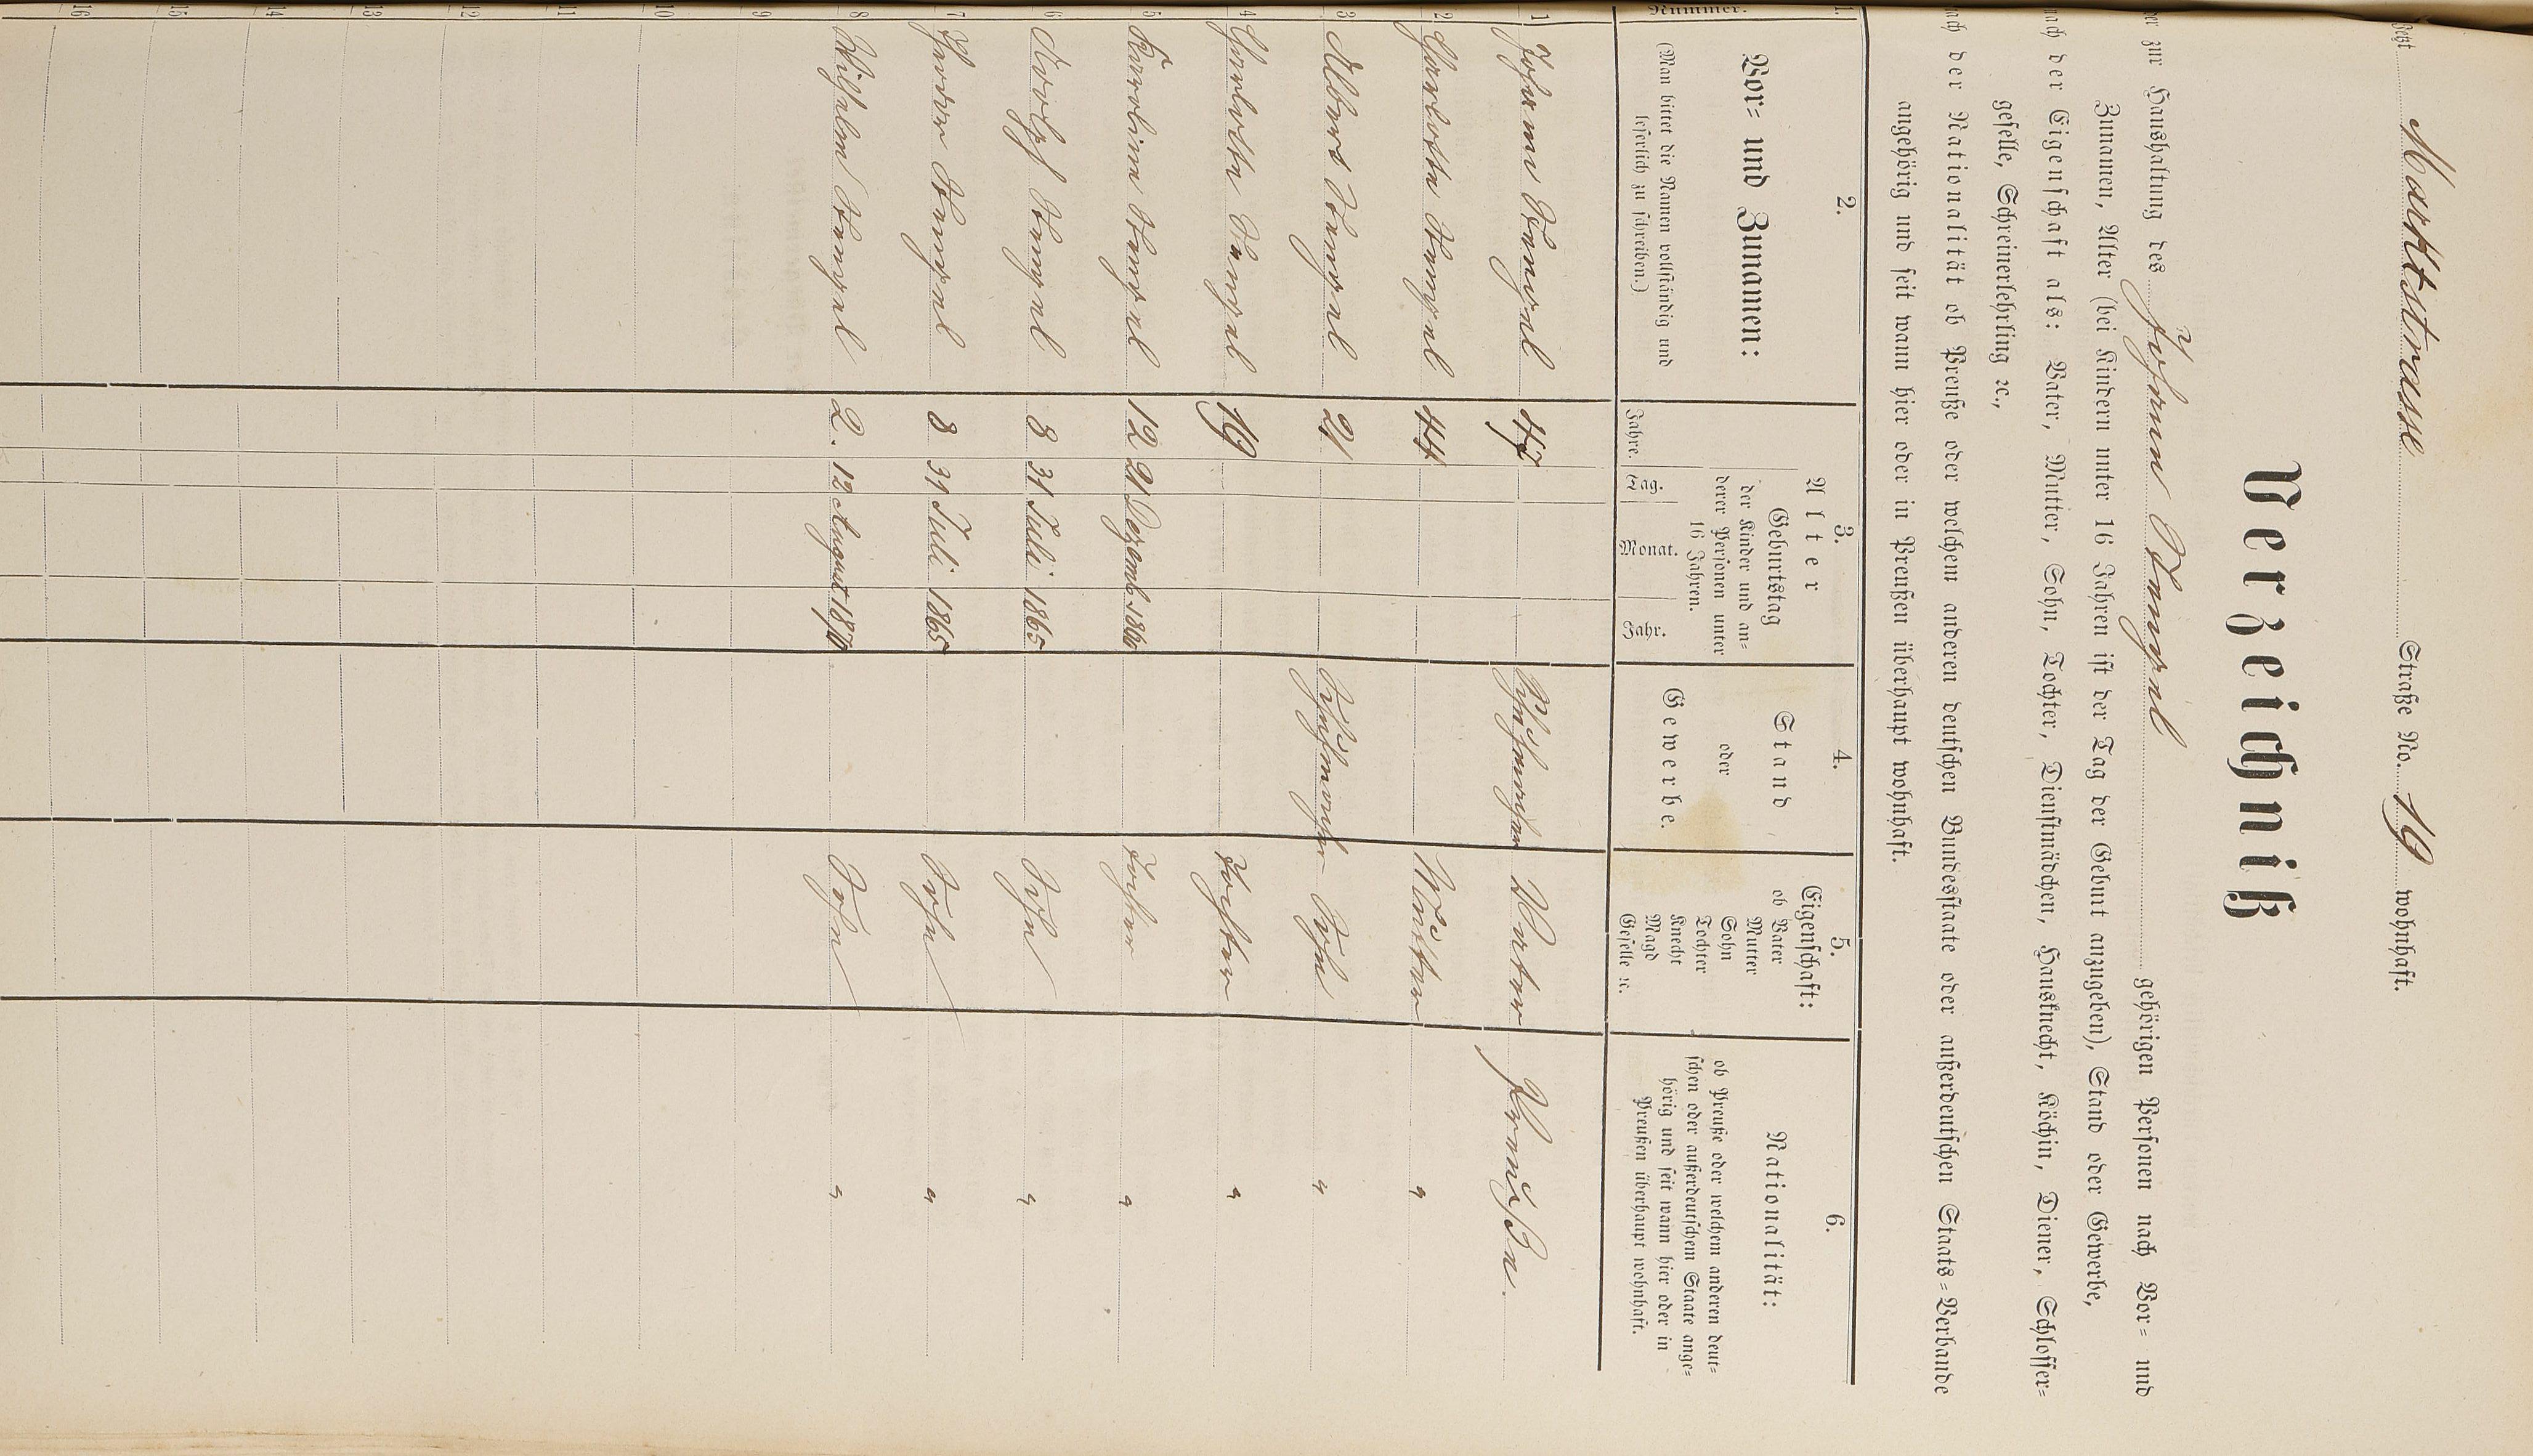 Jetzt Marktstrasse Straße No. 19 wohnhaft.
Verzeichniß
der zur Haushaltung des Johann Stengel gehörigen Personen nach Vor- und
Zunamen, Alter (bei Kindern unter 16 Jahren ist der Tag der Geburt anzugeben), Stand oder Gewerbe,
nach der Eigenschaft als: Vater, Mutter, Sohn, Tochter, Dienstmädchen, Hausknecht, Köchin, Diener, Schlosser-
geselle, Schreinerlehrling ꝛc.,
nach der Nationalität ob Preuße oder welchem anderen deutschen Bundesstaate oder außerdeutschen Staats-Verbande
angehörig und seit wann hier oder in Preußen überhaupt wohnhaft.
1. 2. 3. 4. 5. 6.
Nummer.
Vor- und Zunamen:
(Man bittet die Namen vollständig und
leserlich zu schreiben.)
Alter
Geburtstag
der Kinder und an-
derer Personen unter
16 Jahren.
Jahre. Tag. Monat. Jahr.
Stand
oder
Gewerbe.
Eigenschaft:
ob Vater
Mutter
Sohn
Tochter
Knecht
Magd
Geselle ꝛc.
Nationalität:
ob Preuße oder welchem anderen deut-
schen oder außerdeutschem Staate ange-
hörig und seit wann hier oder in
Preußen überhaupt wohnhaft.
1 Johann Stengel 47 Schuhmacher Vater Preuße.
2 Charlotte Stengel 44 Mutter "
3 Albert Stengel 21 Schuhmacher Sohn "
4 Charlotte Stengel 19 Tochter "
5 Karoline Stengel 12 21 Dezemb 1860 Tochter "
6 Adolph Stengel 8 31 Juli 1865 Sohn "
7 Stengel 8 31 Juli 1865 Sohn "
8 Wilhelm Stengel 2. 12 August 1870 Sohn "
9
10
11
12
13
14
15
16